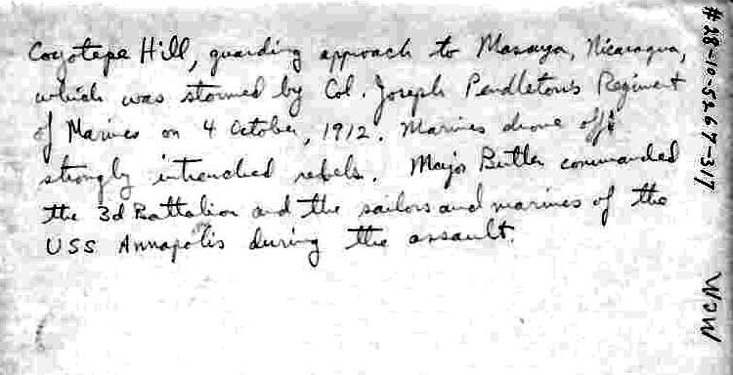 Coyotepe Hill, guarding approach to Masaya, Nicaragua,
which was stormed by Col. Joseph Pendleton's Regiment
of Marines on 4 October, 1912. Marines drove off
strongly intrenched rebels. Major Butler commanded
the 3d Battalion and the sailors and marines of the
USS Annapolis during the assault.
#28-10-5267-317